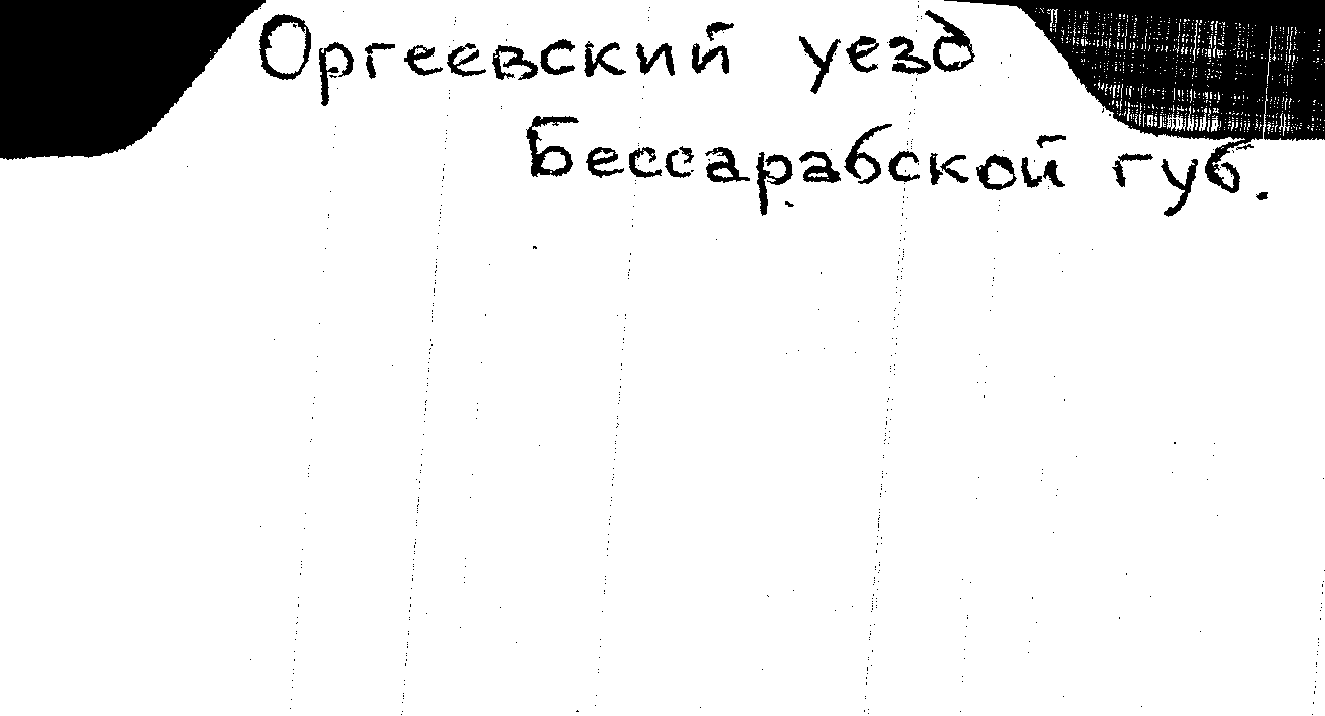 Оргеевский уезд
Бессарабской губ.